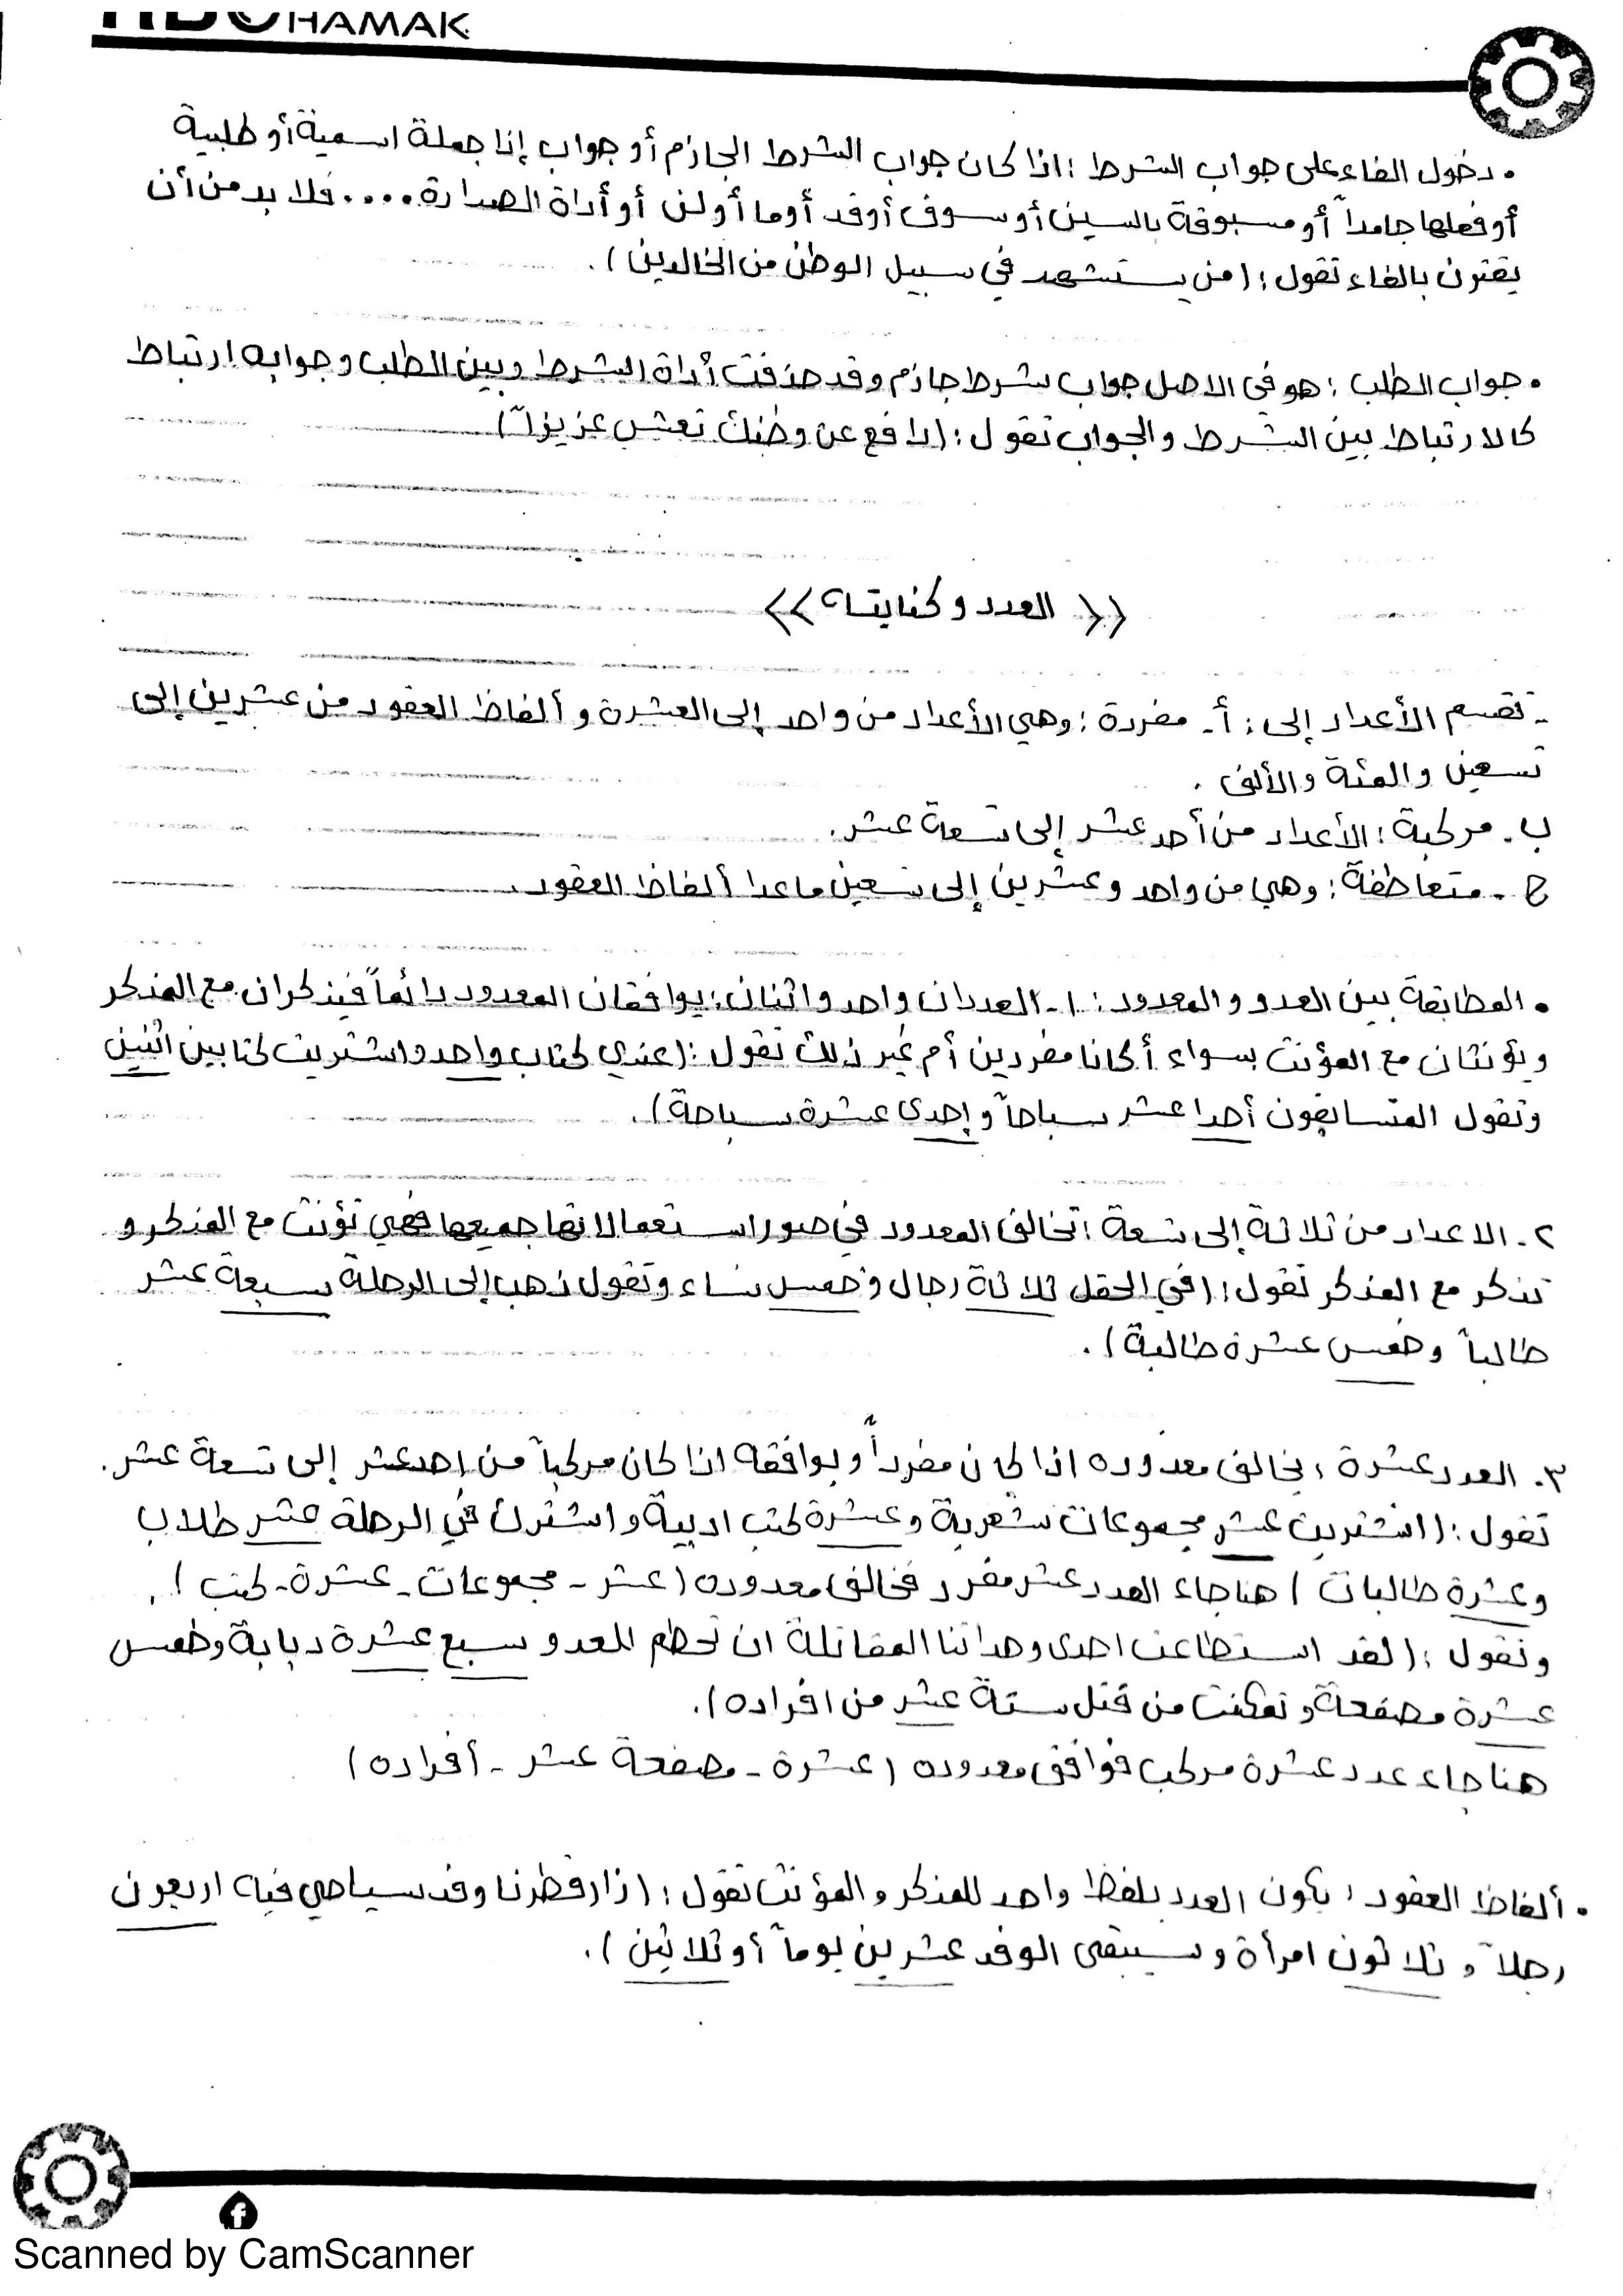 HAMAK
• دخول الفاء على جواب الشرط : اذا كان جواب الشرط الجازم أو جواب إذا جملة اسمية أو طلبية
أو فعلها جامداً أو مسبوقة بالسين أو سوف أو قد أو ما أو لن أو أداة الصدارة .... فلا بد من أن
يقترن بالفاء تقول : (من يستشهد في سبيل الوطن من الخالدين) .
• جواب الطلب : هو في الاصل جواب شرط جازم وقد حذفت أداة الشرط وبين الطلب وجوابه ارتباط
كالارتباط بين الشرط والجواب تقول : (دافع عن وطنك تعش عزيزاً)
<< العدد وكناياته >>
- تقسم الأعداد إلى : أ- مفردة : وهي الأعداد من واحد إلى العشرة وألفاظ العقود من عشرين إلى
تسعين والمئة والألف .
ب- مركبة : الأعداد من أحد عشر إلى تسعة عشر .
ج - متعاطفة : وهي من واحد وعشرين إلى تسعين ماعدا ألفاظ العقود
• المطابقة بين العدد والمعدود : ١- العددان واحد واثنان : يوافقان المعدود دائماً فيذكران مع المذكر
ويؤنثان مع المؤنث سواء أكانا مفردين أم غير ذلك تقول : (عندي كتاب واحد واشتريت كتابين اثنين
وتقول المتسابقون أحدا عشر سباحاً وإحدى عشرة سباحة) .
٢- الاعداد من ثلاثة إلى تسعة : تخالف المعدود في صور استعمالاتها جميعها فهي تؤنث مع المذكر و
تذكر مع المذكر تقول : (في الحقل ثلاثة رجال وخمس نساء وتقول ذهب إلى الرحلة سبعة عشر
طالباً وخمس عشرة طالبة) .
٣. العدد عشرة : يخالف معدوده اذا كان مفرداً ويوافقه اذا كان مركباً من احد عشر إلى تسعة عشر .
تقول : (اشتريت عشر مجموعات شعرية وعشرة كتب ادبية واشترك في الرحلة عشر طلاب
وعشرة طالبات) هنا جاء العدد عشر مفرد فخالف معدوده (عشر - مجموعات - عشرة - كتب) .
ونقول : (لقد استطاعت احدى وحداتنا المقاتلة ان تحطم للعدو سبع عشرة دبابة وخمس
عشرة مصفحة وتمكنت من قتل ستة عشر من افراده) .
هنا جاء عدد عشرة مركب فوافق معدوده (عشرة - مصفحة عشر - أفراده)
• ألفاظ العقود : يكون العدد بلفظ واحد للمذكر والمؤنث تقول : (زار قطرنا وفد سياحي فيه اربعون
رجلاً و ثلاثون امرأة وسيبقى الوفد عشرين يوماً أو ثلاثين) .
Scanned by CamScanner